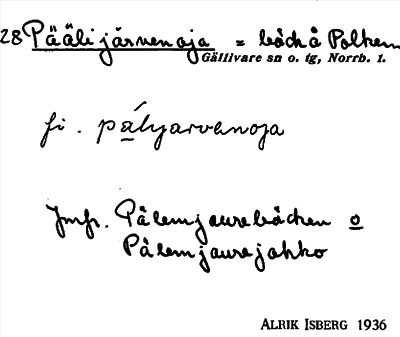 28 Päälijärvenoja = bäck å Polhem
Gällivare sn o. tg, Norrb. l.
fi. pályarvenoja
Jmfr. Pålemjaurebäcken o
Pålemjaurejokko
ALRIK ISBERG 1936